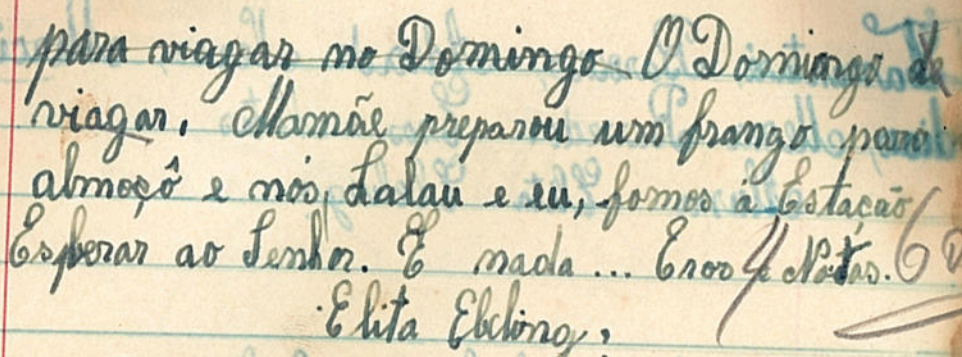 para viagar no Domingo O Domingo de
viagar. Mamãe preparou um frango para
almoçô e nós, Lalau e eu, fomos à Estação
Esperar ao Senhor. E nada ... Eros 4 Notas. 60
Elita Ebeling.